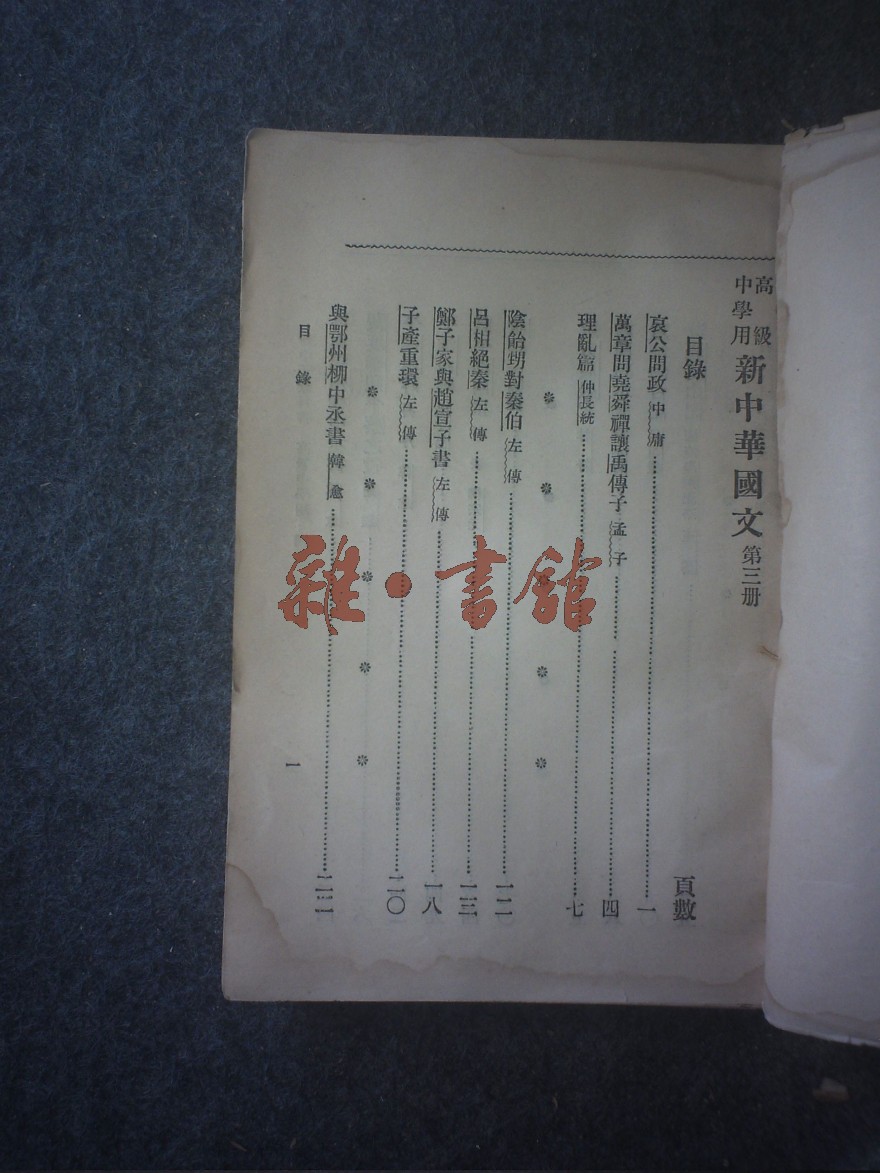 高級中學用 新中華國文 第三册
目錄 頁數
哀公問政 中庸 一
萬章問堯舜禪讓禹傳子 孟子 四
理亂篇 仲長統 七
陰飴甥對秦伯 左傳 一二
呂相絕秦 左傳 一三
鄭子家與趙宣子書 左傳 一八
子產重環 左傳 二〇
與鄂州柳中丞書 韓愈 二二
目錄 一
雜·書館